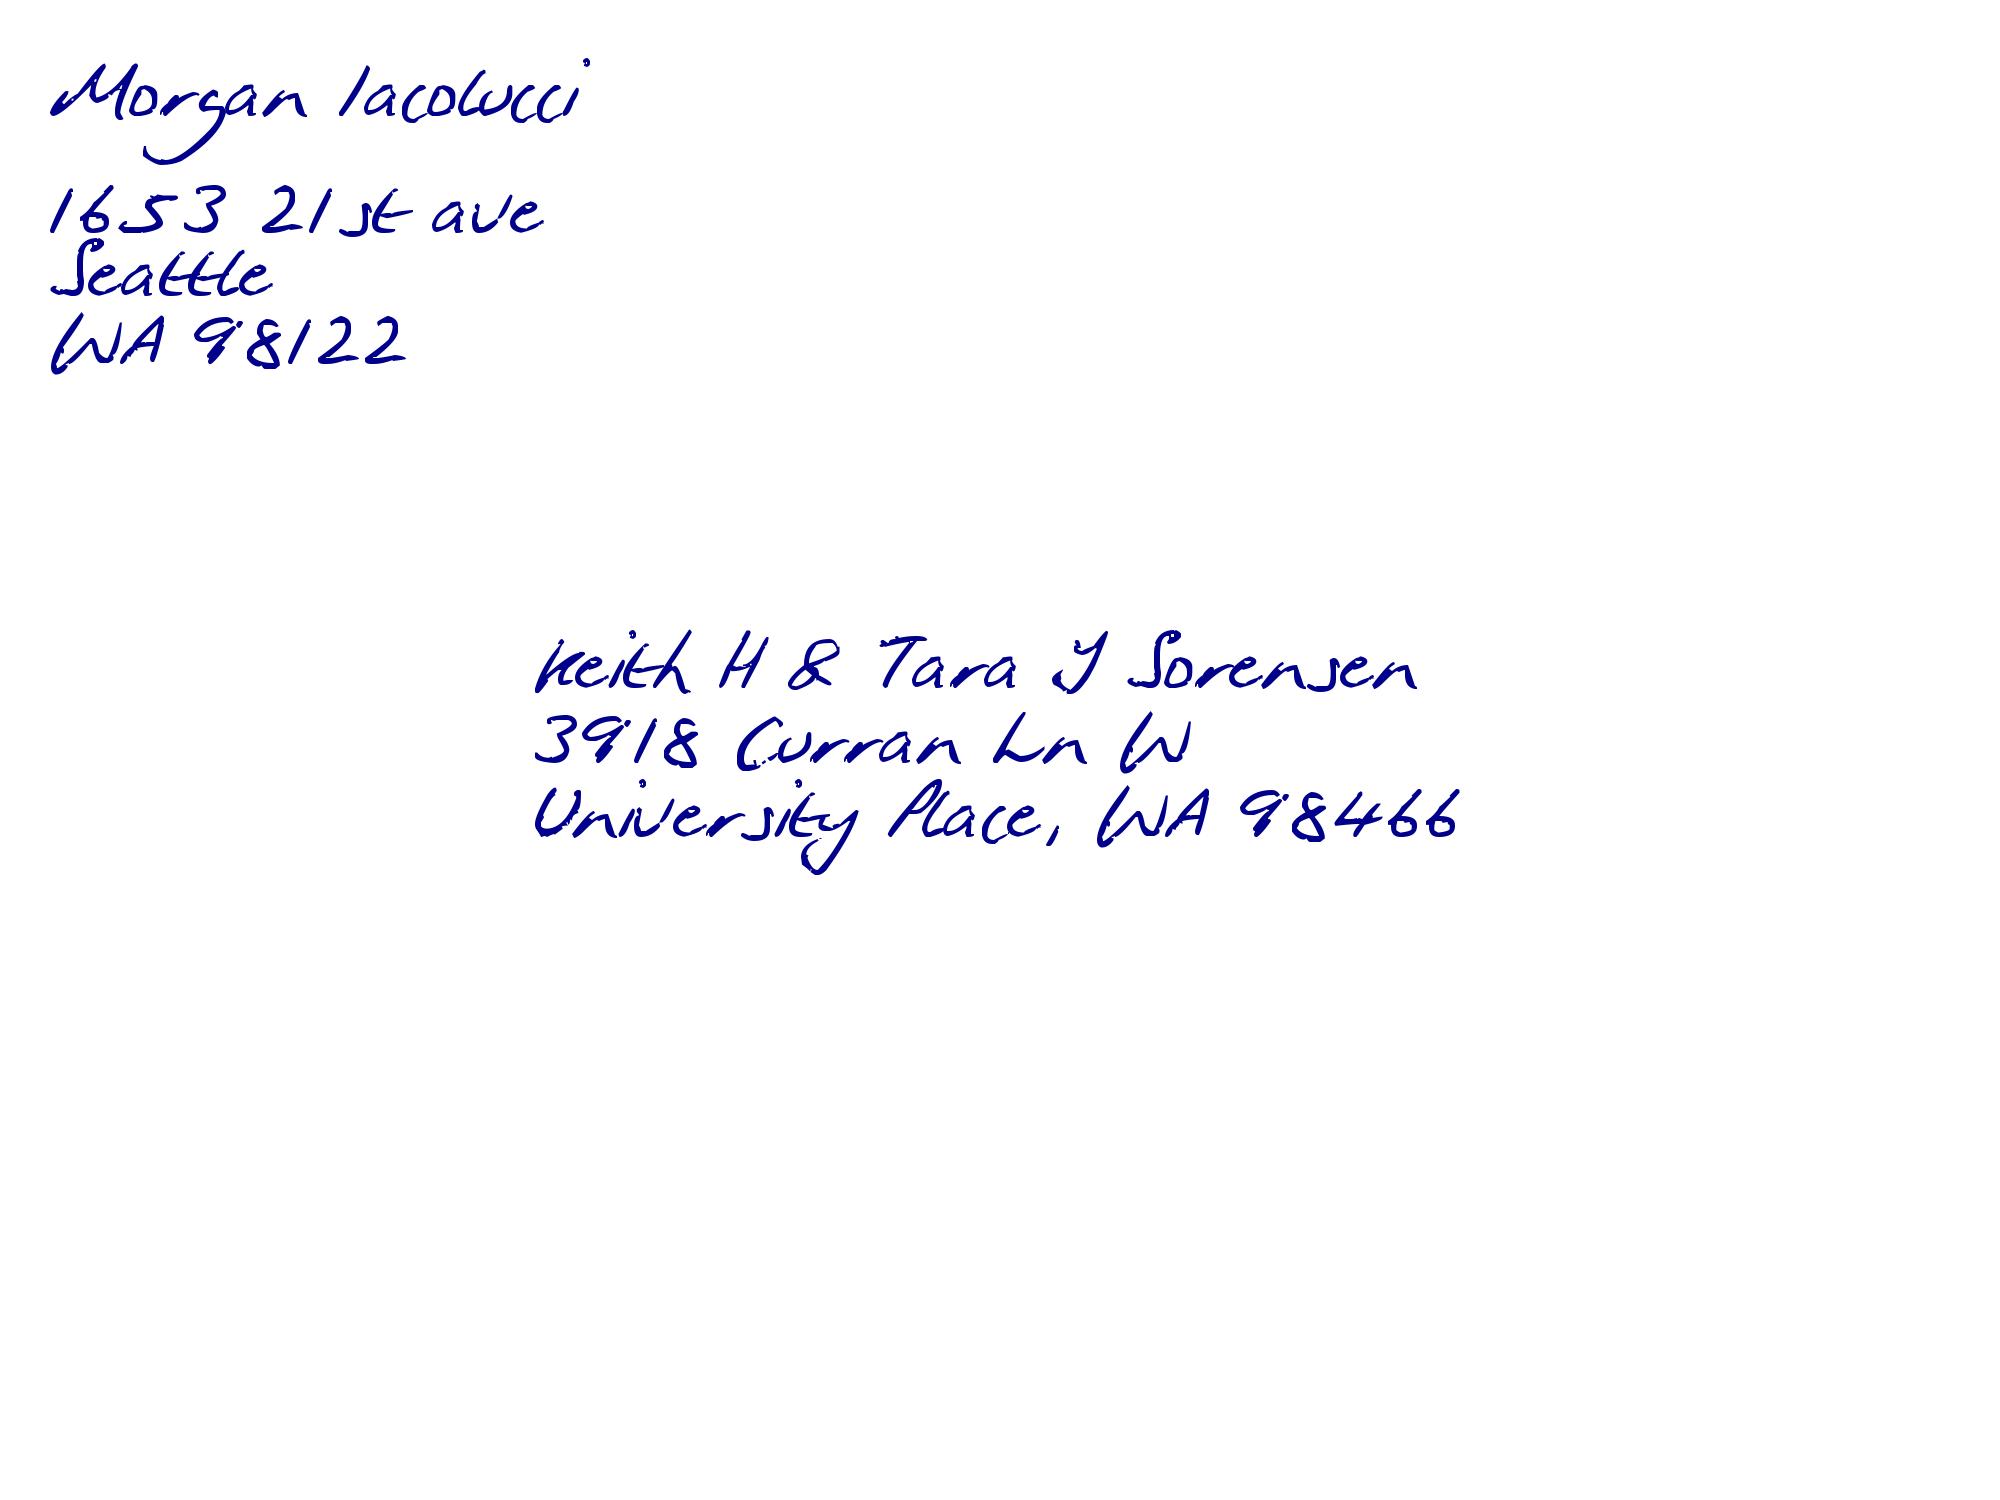 Morgan Iacolucci
1653 21st ave
Seattle
WA 98122
Keith H & Tara Y Sorensen
3918 Curran Ln W
University Place, WA 98466